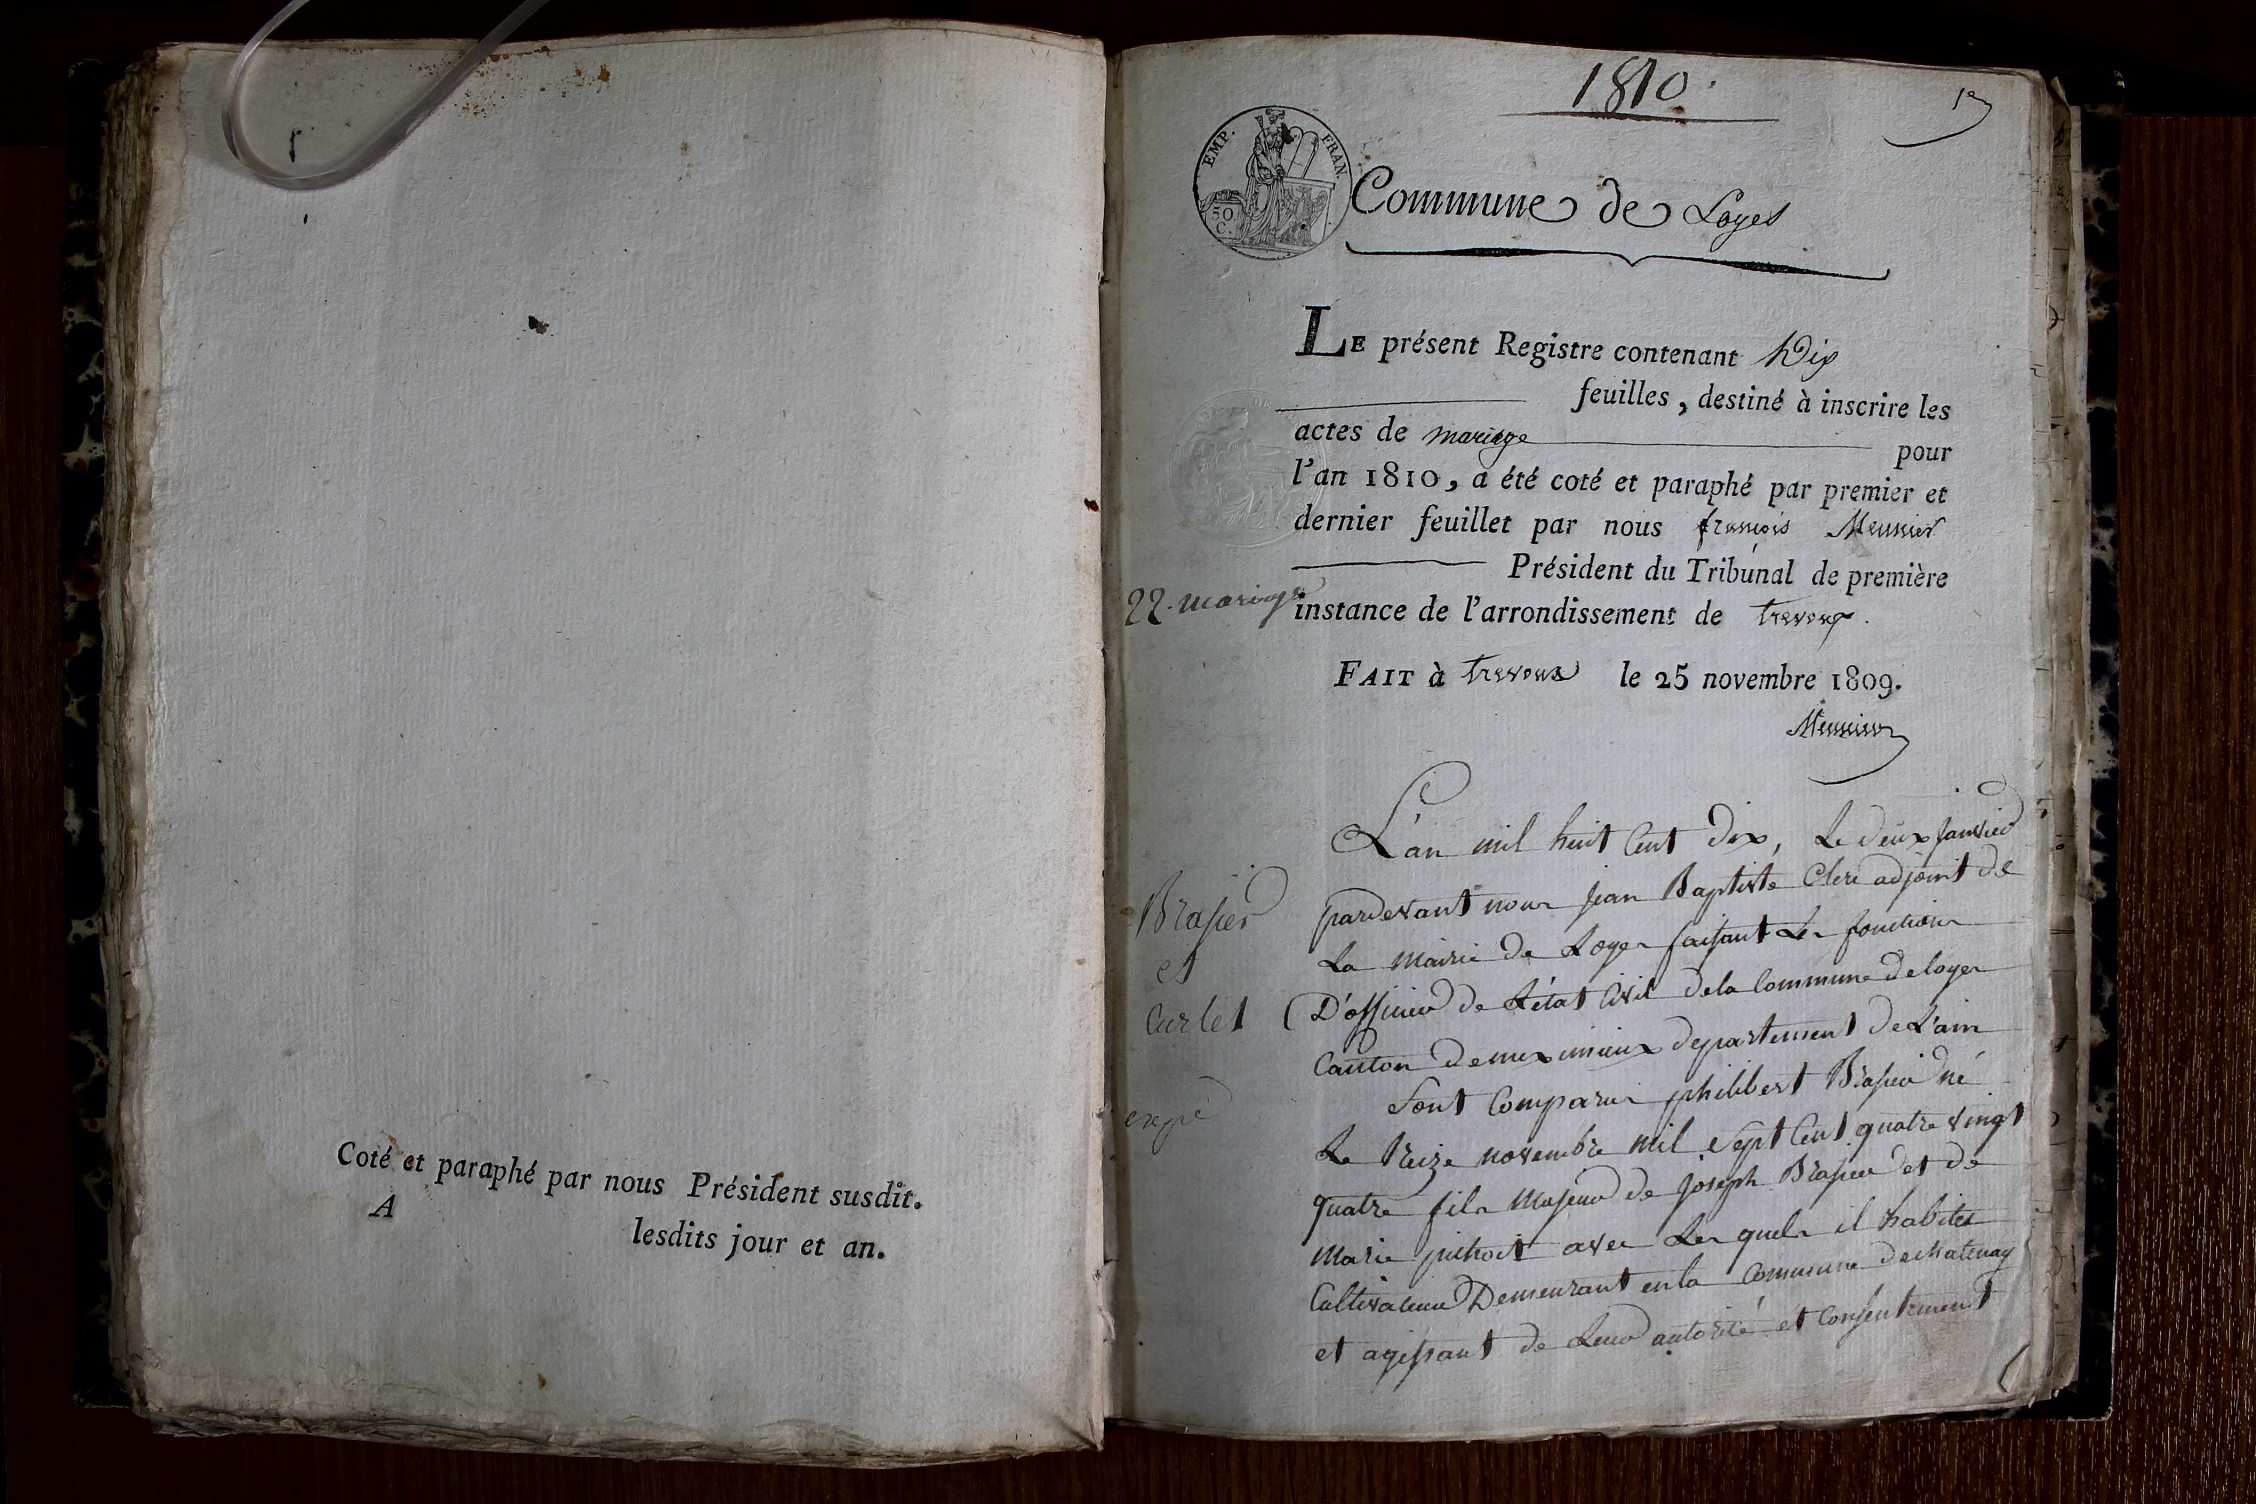 Coté et paraphé par nous Président susdit.
A
lesdits jour et an.
1810.
1er
EMP. FRAN.
50
C.
Commune de Loyes
LE présent Registre contenant Dix
feuilles, destiné à inscrire les
actes de mariage pour
l'an 1810, a été coté et paraphé par premier et
dernier feuillet par nous françois Meunier
Président du Tribunal de première
22. mariage
instance de l'arrondissement de trevoux.
FAIT à trevoux le 25 novembre 1809.
Meunier
Brasier
et
Curlet
L'an mil huit Cent dix, Le deux janvier
pardevant nous jean Baptiste Clere adjoint de
La mairie de Loyes faisant Les fonctions
D'officier de L'état Civil de la Commune de loyes
Canton de meximieux departement de L'ain
Sont Comparus philibert Brasier né
Le treize novembre mil sept Cent quatre vingt
quatre fils Majeur de joseph Brasier et de
Marie avec Les quels il habite
Cultivateur Demeurant en la Commune de chatenay
et agissant de Leur autorité et Consentement